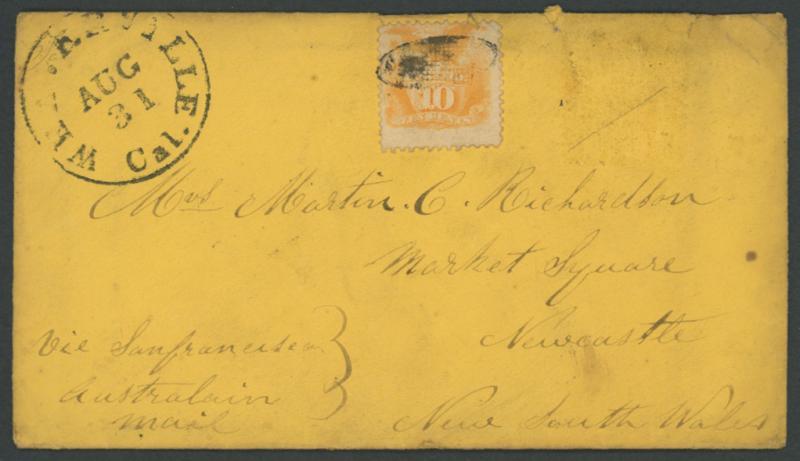 WEAVERVILLE
AUG
31
Cal.
10
TEN CENTS
Mrs Martin. C. Richardson
Market Square
Newcastle
New South Wales
Via Sanfrancisco
Australain
mail